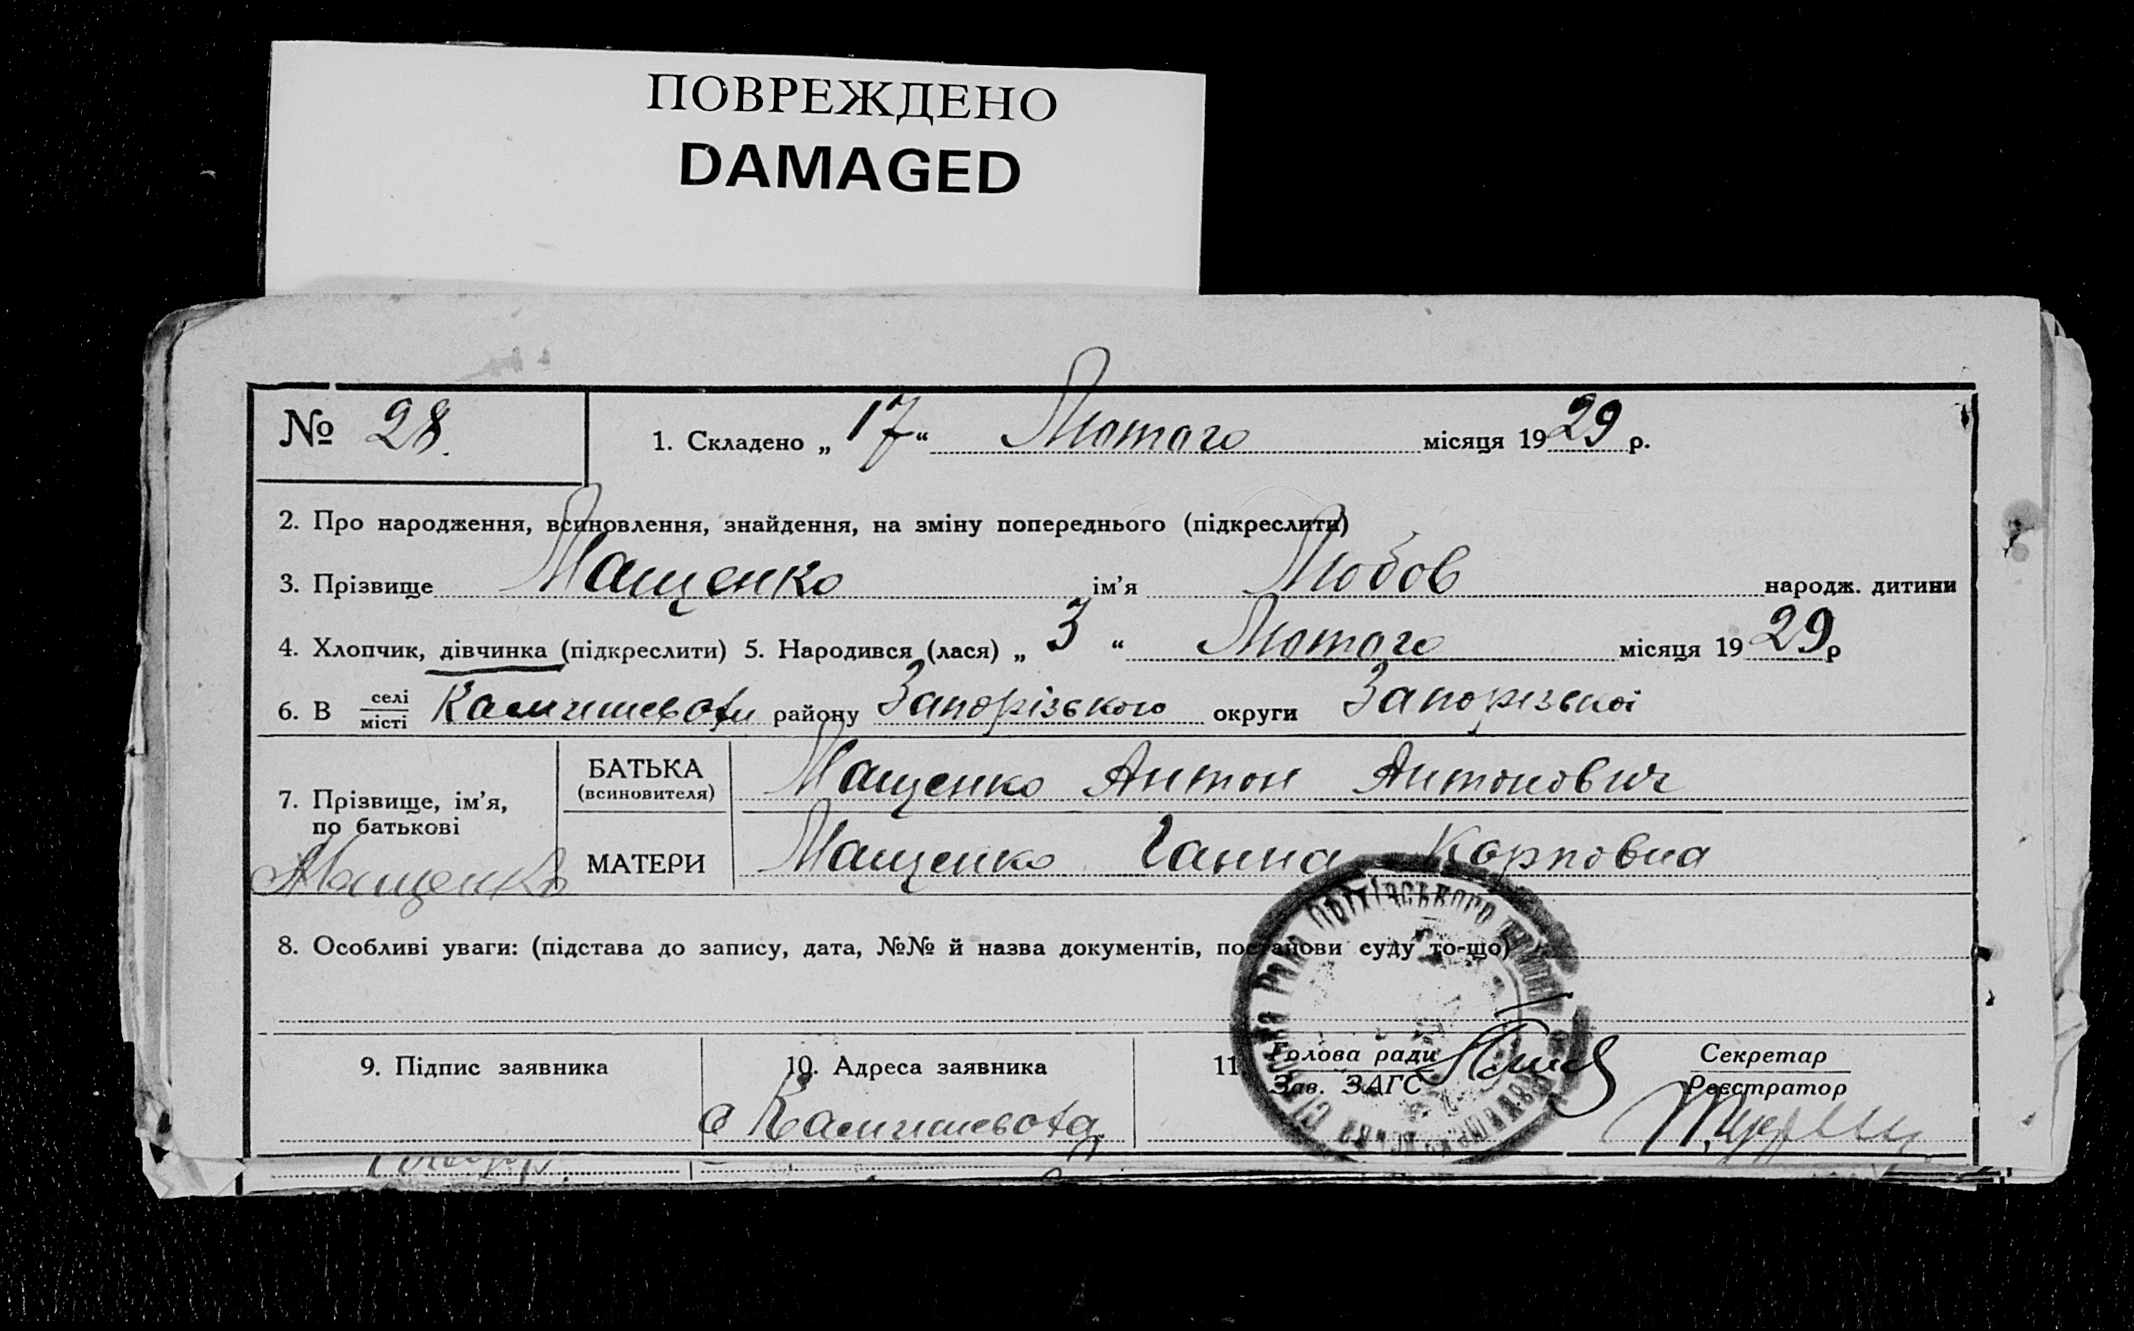 ПОВРЕЖДЕНО
DAMAGED
№ 28. 1. Складено „ 17 “ Лютого місяця 1929 р.
2. Про народження, всиновлення, знайдення, на зміну попереднього (підкреслити)
3. Прізвище Мащенко ім’я Любов народж. дитини
4. Хлопчик, дівчинка (підкреслити) 5. Народився (лася) „ 3 “ Лютого місяця 1929 р
6. В селі місті району Запорізького округи Запорізької
7. Прізвище, ім’я, по батькові
БАТЬКА (всиновителя) Мащенко Антон Антонович
МАТЕРИ Мащенко Ганна Карповна
Мащенко
8. Особливі уваги: (підстава до запису, дата, №№ й назва документів, постанови суду то-що)
9. Підпис заявника 10. Адреса заявника 11 Голова ради Зав. ЗАГС Секретар Реєстратор
с Камишеваха